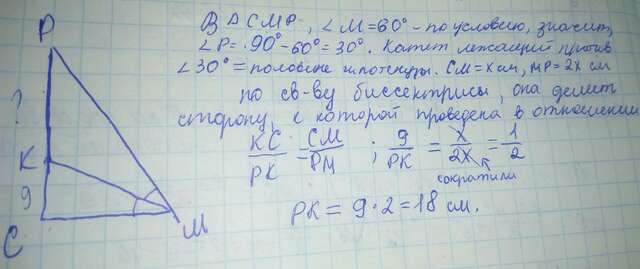 P
?
K
9
C
M
В Δ CMP, ∠M=60° - по условию, значит,
∠P= 90°-60°=30°. Катет лежащий против
∠30° = половине гипотенузы. CM=x см, MP=2x см
по св-ву биссектрисы, она делит
сторону, к которой проведена в отношении
KC/PK = CM/PM ; 9/PK = x/2x = 1/2
сократили
PK = 9·2=18 см.